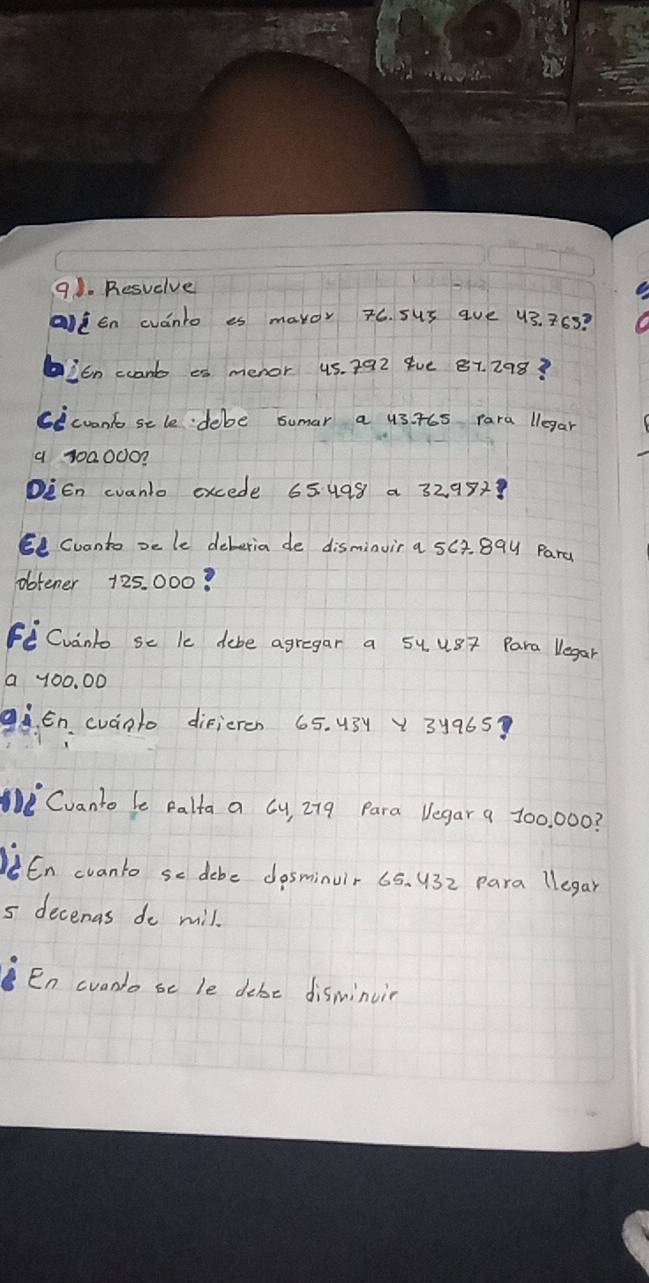 9). Resuelve
a)¿En cuánto es mayor 76.543 que 43.765?
b¿En cuanto es menor 45.792 que 87.298?
c¿cuanto se le debe sumar a 43.765 para llegar
a 100.000?
D¿En cuanto excede 65.498 a 32,987?
E¿Cuanto se le deberia de disminuir a 567.894 Para
obtener 125.000?
F¿Cuánto se le debe agregar a 54.487 Para llegar
a 100.00
g¿.En cuánto difieren 65.434 y 34965?
¿Cuanto le falta a 64,279 Para llegar a 100,000?
¿En cuanto se debe desminuir 65.432 para llegar
5 decenas de mil.
¿En cuanto se le debe disminuir